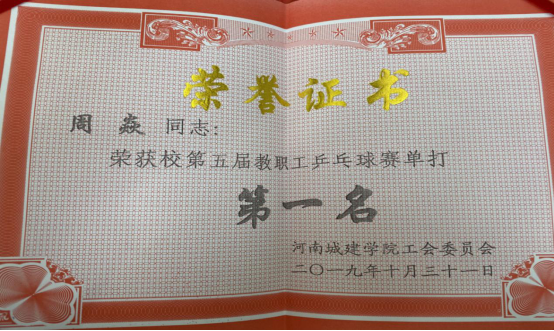 荣誉证书
周焱 同志:
荣获校第五届教职工乒乓球赛单打
第一名
河南城建学院工会委员会
二〇一九年十月三十一日